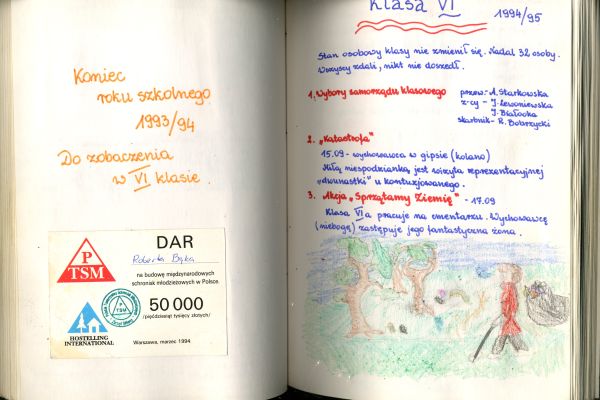 Koniec
roku szkolnego
1993/94
Do zobaczenia
w VI klasie.
DAR
Roberta Bąka
na budowę międzynarodowych
schronisk młodzieżowych w Polsce
50 000
/pięćdziesiąt tysięcy złotych/
Warszawa, marzec 1994
P
TSM
HOSTELLING
INTERNATIONAL
Klasa VI
1994/95
Stan osobowy klasy nie zmienił się. Nadal 32 osoby.
Wszyscy zdali, nikt nie doszedł.
1. Wybory samorządu klasowego
przew.- A. Starkowska
z-cy - J. Lewoniewska
J. Białooka
skarbnik- R. Bobrzycki
2. „Katastrofa"
15.09 - wychowawca w gipsie (kolano)
Miłą niespodzianką jest wizyta reprezentacyjnej
„dwunastki" u kontuzjowanego.
3. Akcja „Sprzątamy Ziemię" - 17.09
Klasa VIa pracuje na cmentarzu. Wychowawcę
(niebogę) zastępuje jego fantastyczna żona.